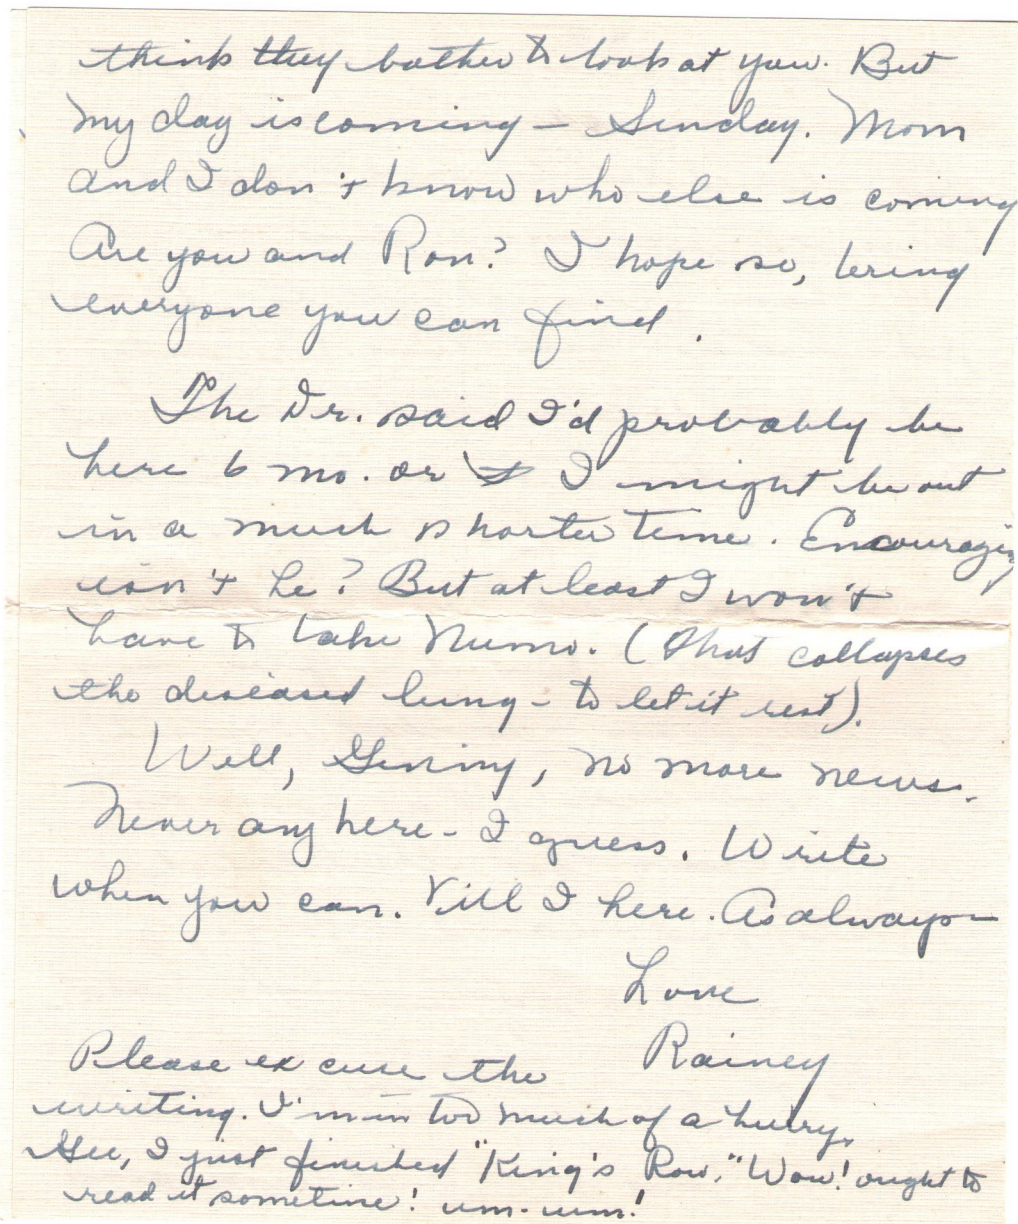 think they bother to look at you. But
my day is coming - Sunday. Mom
and I don't know who else is coming
Are you and Ron? I hope so, bring
everyone you can find.
The Dr. said I'd probably be
here 6 mo. or I might be out
in a much shorter time. Encouraging
isn't he? But at least I won't
have to take Numo. (that collapses
the diseased lung - to let it rest).
Well, Ginny, no more news.
Never any here - I guess. Write
when you can. Till I here. As always -
Love
Rainey
Please excuse the
writing. I'm in too much of a hurry.
Gee, I just finished "King's Row." Wow! ought to
read it sometime! um-um!